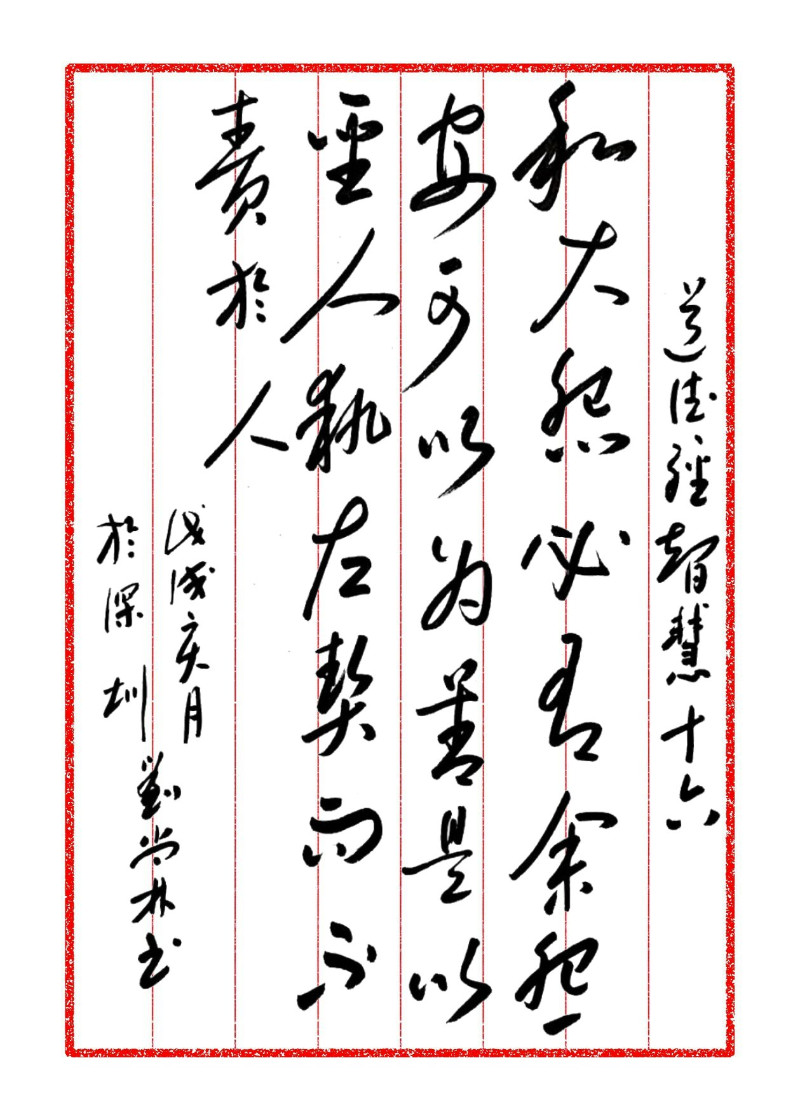 道德經智慧十六
和大怨必有余怨
安可以为善是以
聖人執左契而不
責於人
戊戌亥月
於深圳
劉尚林书